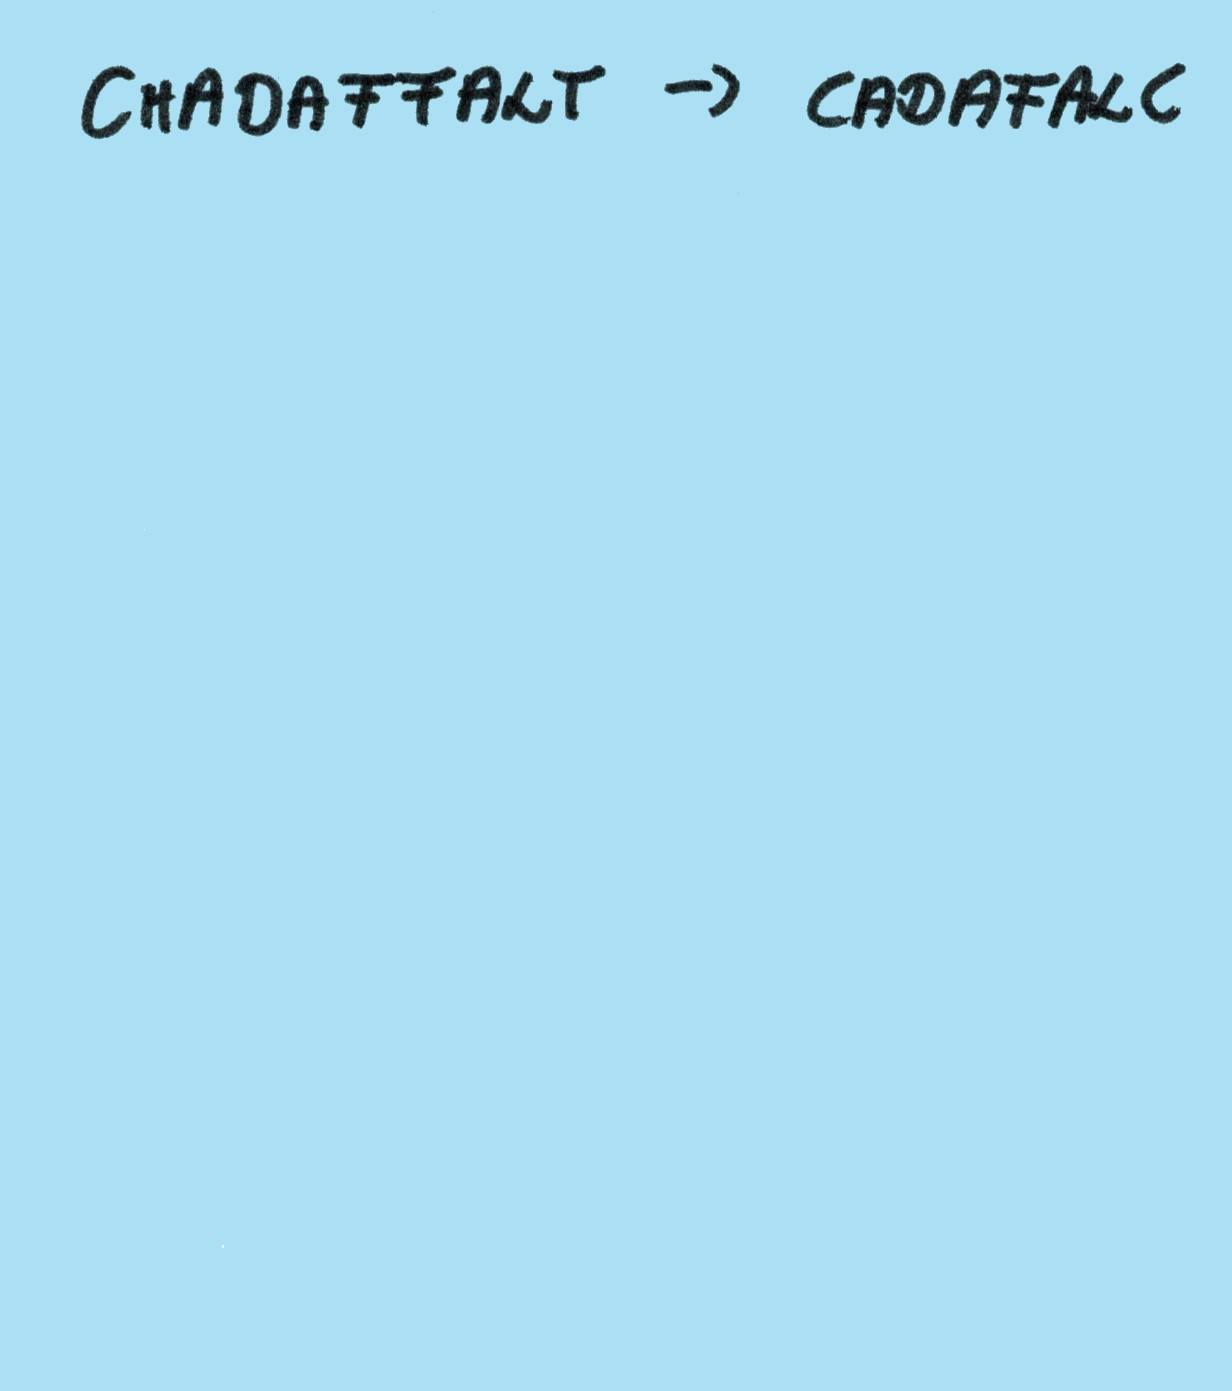 CHADAFFALT -> CADAFALC